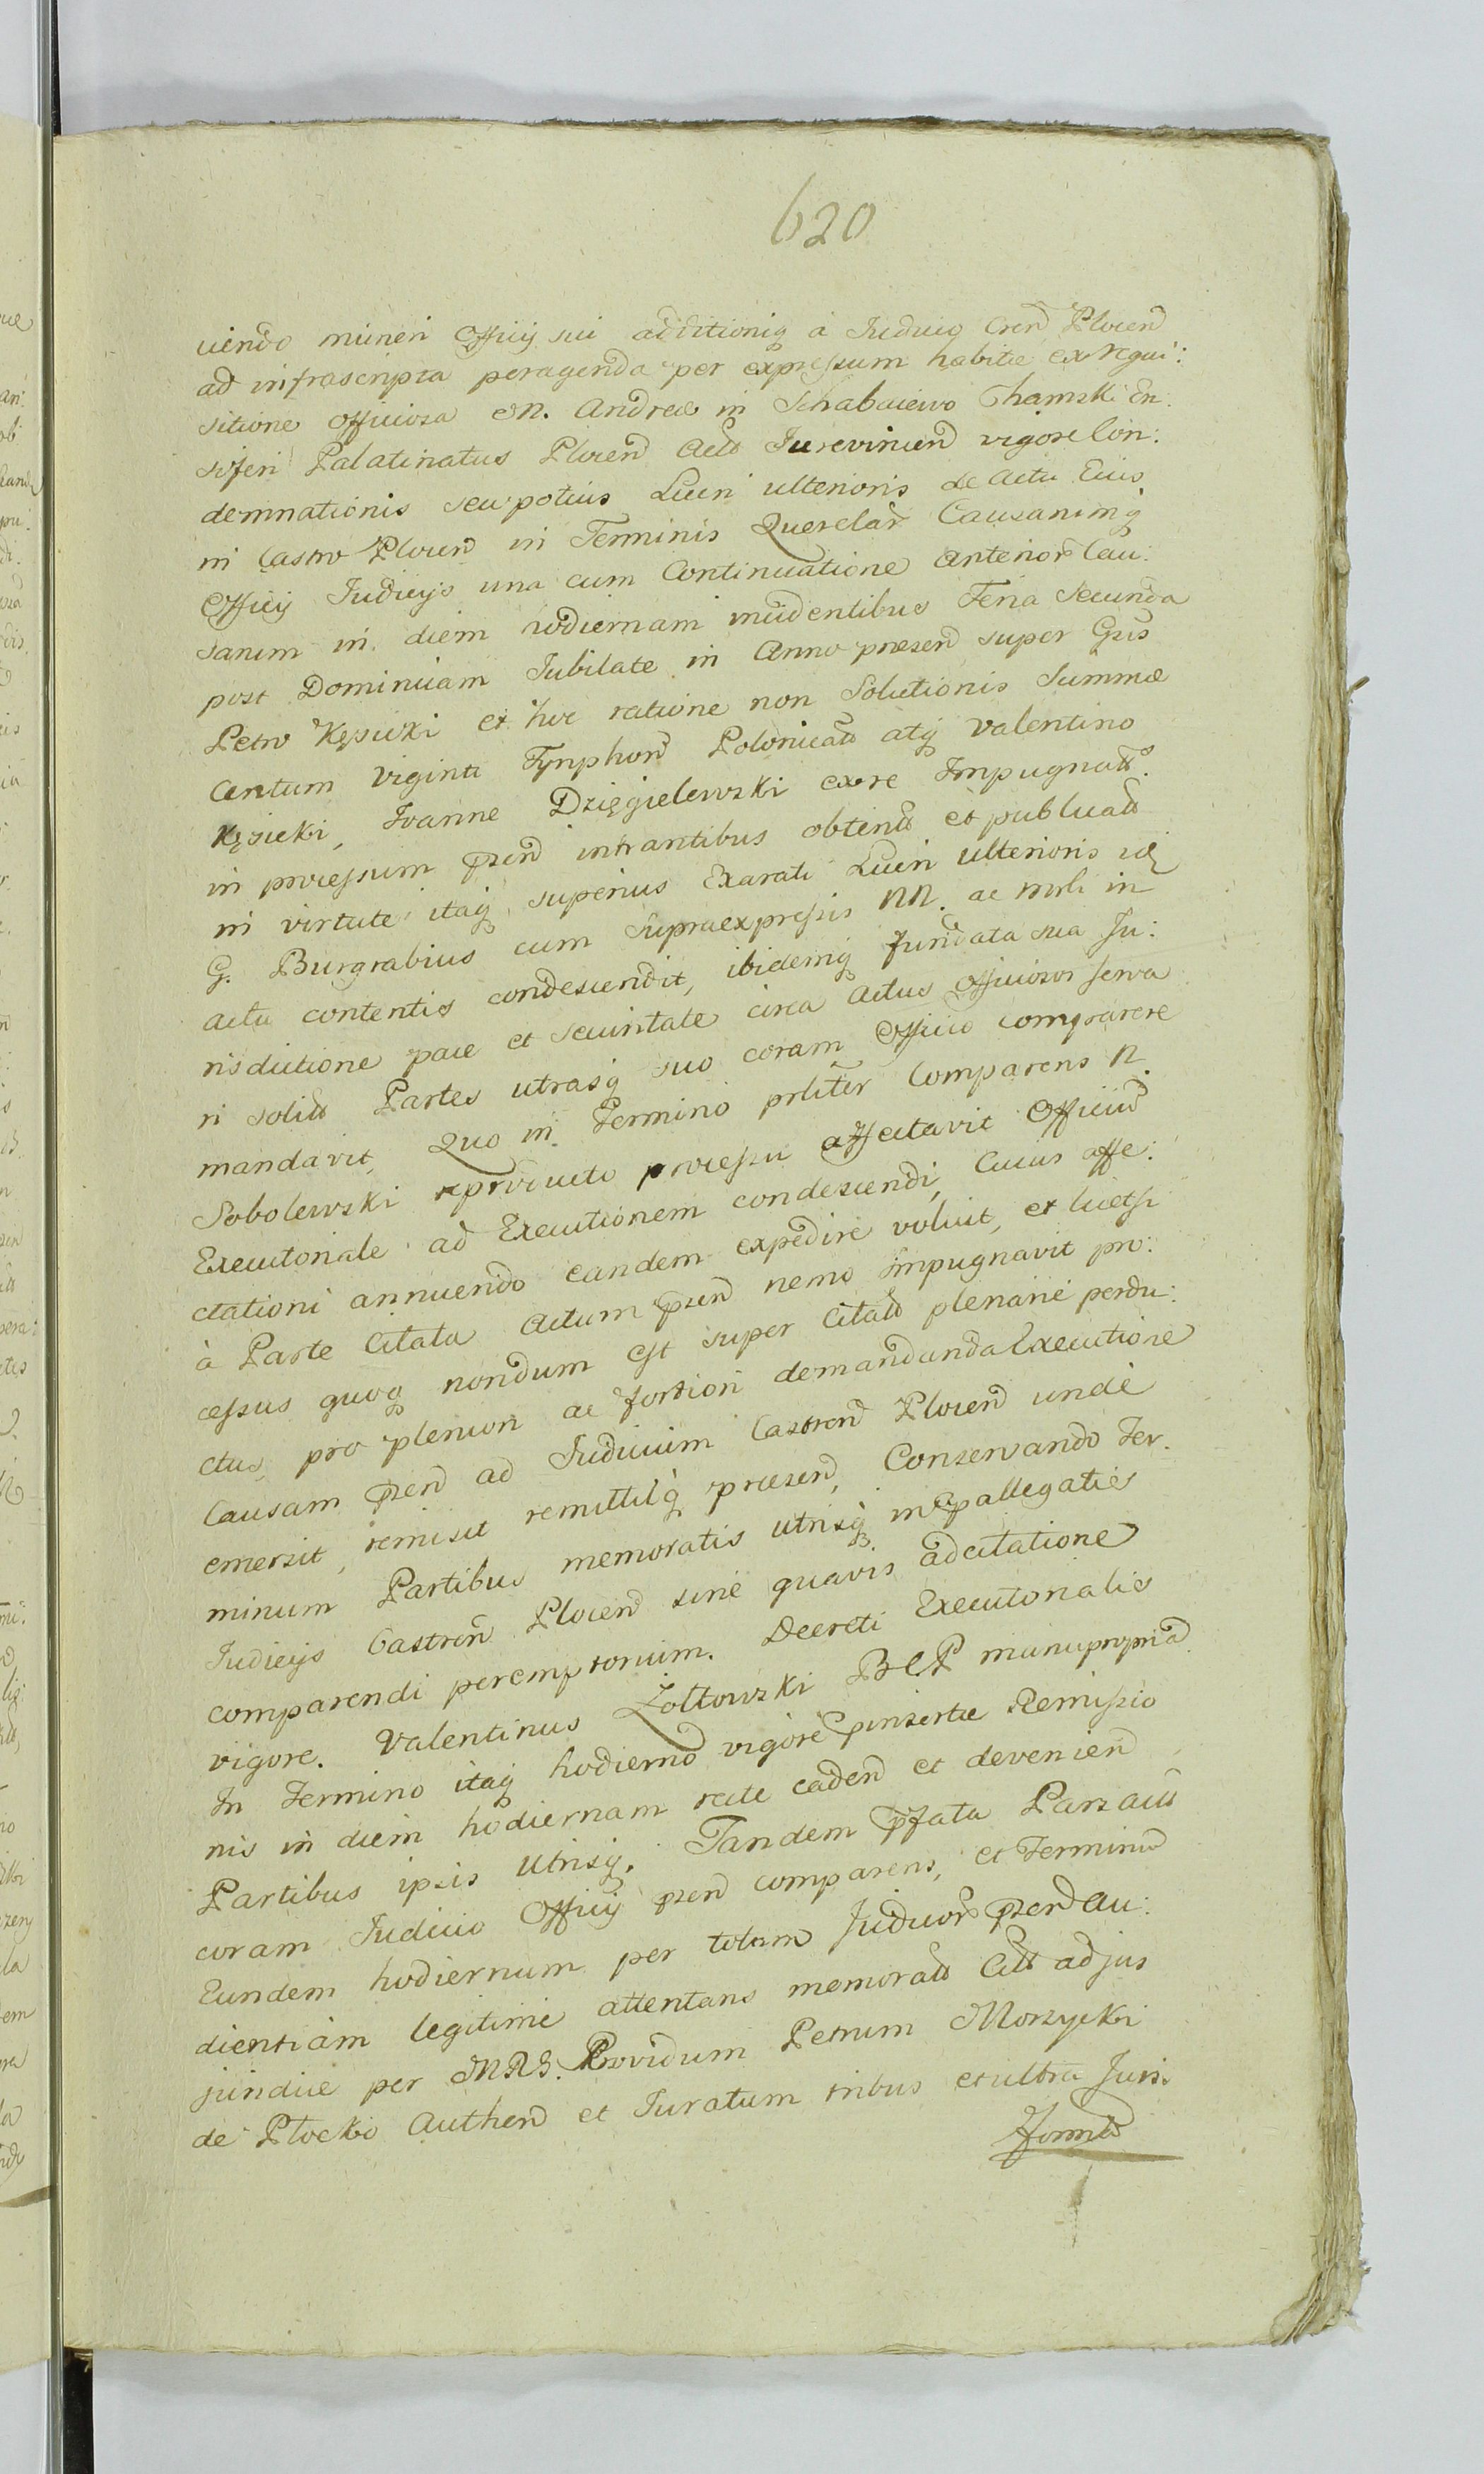 620
ciendo muneri Officij sui additioniq à Judicio Cren Plocen
ad infrascripta peragenda per expressum habitæ ex requi:
sitione officiosa MN. Andreæ in Schabaiewo Chamski En:
siferi Palatinatus Plocen Acto Jurevincen vigore Con:
demnationis seu potius Lucri ulterioris de actu Eius
in Castro Plocen in Terminis Querelar Causarumq
Officij Judicijs una cum Continuatione anterior Cau:
sarum in diem hodiernam incidentibus Feria Secunda
post Dominicam Jubilate in Anno præsen super Gsis
Petro Kęsicki et hoc ratione non Solutionis Summæ
Centum viginti Tynphon Polonicalt atq Valentino
Kęsicki, Joanne Dzięgielewski ex re Impugnatt.
in processum psen intrantibus obtent et publicatt
in virtute itaq superius Exarati Lucri Ulterioris id
G. Burgrabius cum Supraexpressis NN. ac mrli in
actu contentis condescendit, ibidemq fundata sua Ju:
risdictione pace et securitate circa Actus Officiosos serva
ri solitt Partes utrasq suo coram Officio comparere
mandavit, Quo in Termino prliter Comparens N.
Sobolewski reproducto processu affectavit Officiu
Executoriale ad Executionem condescendi, Cuius affe:
ctationi annuendo eandem expedire voluit, et licetsi
à Parte Citata Actum psen nemo impugnavit pro:
cessus quoq nondum est super Citatt plenarie perdu:
ctus, pro pleniori ac fortiori demandanda Executione
Causam psen ad Judicium Castren Plocen unde
emersit, remisit remittitq præsen, Conservando Ter:
minum Partibus memoratis utrisq in Spallegatis
Judicijs Castren Plocen sine quavis adcitatione
comparendi peremptorium. Decreti Executorialis
vigore. Valentinus Żółtowski BCP manupropria
In Termino itaq hodierno vigore pinsertæ Remissio
nis in diem hodiernam recte caden et devenien
Partibus ipsis Utrisq. Tandem pfata Pars actt
coram Judicio Officij psen comparens, et Terminu
Eundem hodiernum per totam Judicior psen Au:
dientiam legitime attentans memoratt Citt ad jus
juridice per MRG. Providum Petrum Morzycki
de Płocko Authen et Juratum tribus et ultra Juris
formt